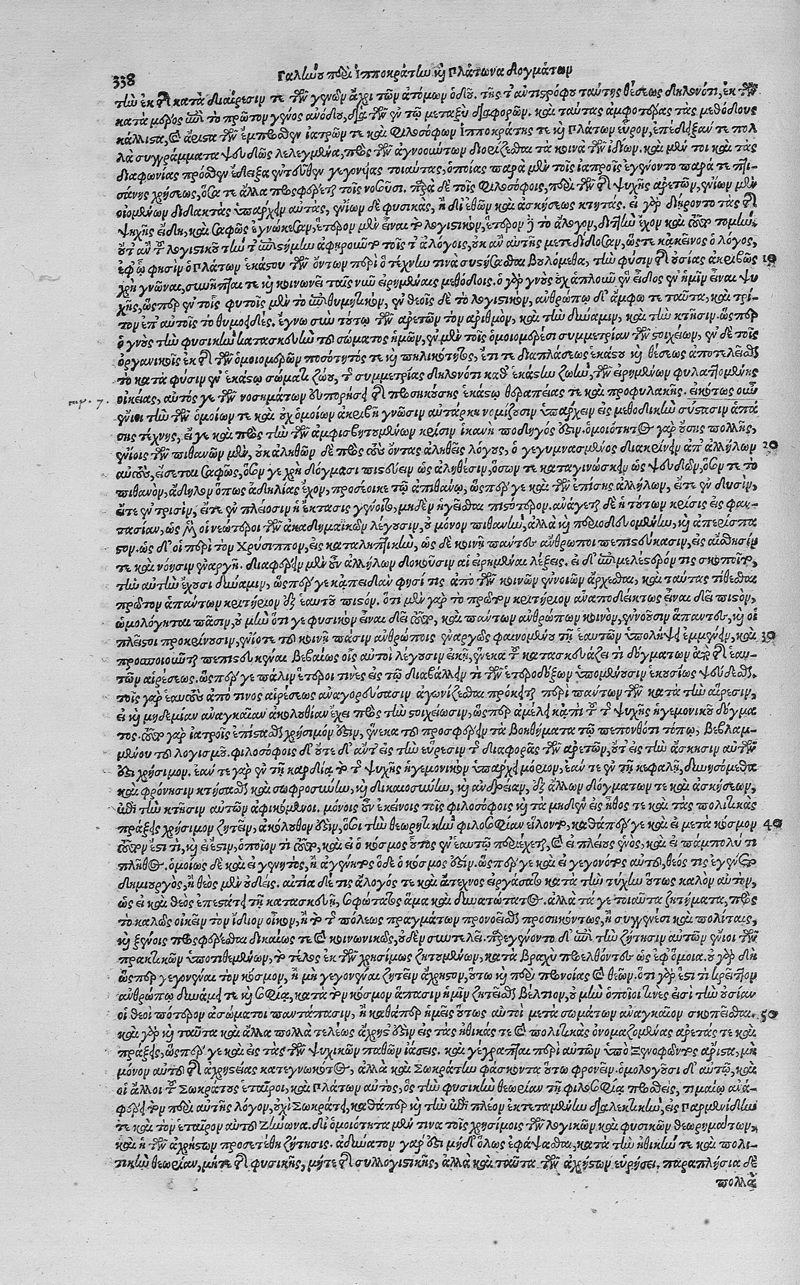 338 Γαλίωου περὶ Ἱπποκράτους καὶ Πλάτωνα δογμάτων
τὴν ἐκ τῆς κατὰ διαίρεσιν τε τῶν γενῶν ἄχρι τῶν ἀτόμων ὁδοῦ. τῆς τ' ἀντιστρόφου ταύτης θέσεως δηλονότι, ἐκ τῶν
κατὰ μέρος ἐπὶ τὸ πρῶτον γένος ἀνόδου, διὰ τῶν ἐν τῷ μεταξὺ διαφορῶν. καὶ ταύτας ἀμφοτέρας τὰς μεθόδους
κάλλιστα, καὶ ἄριστα τῶν ἔμπροσθεν ἰατρῶν τε καὶ φιλοσόφων Ἱπποκράτης τε καὶ Πλάτων εὗρον, ἐπέδειξαν τε πολ
λὰ συγγράμματα ψευδῶς λελεγμένα, πρὸς τῶν ἀγνοούντων διορίζεσθαι τὰ κοινὰ τῶν ἰδίων. καὶ μέν τοι καὶ τὰς
διαφωνίας πρόσθεν ἔδειξα ἐντεῦθεν γεγονυίας τοιαύτας, ὁποίας παρὰ μὲν τοῖς ἰατροῖς ἐγένοντο παρά τε πτι-
σάνης χρήσεως, ὅσα τε ἄλλα προσφέρεται τοῖς νοσοῦσι. παρὰ δὲ τοῖς φιλοσόφοις, περὶ τῶν τῆς ψυχῆς ἀρετῶν, ἐνίων μὲν
οἰομένων διδακτὰς ὑπάρχειν αὐτάς, ἐνίων δὲ φυσικάς, ἢ δι' ἐθῶν καὶ ἀσκήσεως κτητάς. εἰ γὰρ διῄρουν τὸ τὰς τῆς
ψυχῆς εἴδη, καὶ σαφῶς ἐγνώκεσαν, ἕτερον μὲν εἶναι τὸ λογιστικόν, ἕτερον δὲ τὸ ἄλογον,
ἐφ' ᾧ φησὶν ὁ Πλάτων ἑκάστου τῶν ὄντων περὶ ὃ τέχνην τινὰ συστήσασθαι βουλόμεθα, τὴν φύσιν τῆς οὐσίας ἀκριβῶς 10
χρὴ γνῶναι,
χῆς, ὥσπερ ἐν τοῖς φυτοῖς μὲν τὸ ἐπιθυμητικόν, ἐν θεοῖς δὲ τὸ λογιστικόν, ἀνθρώπῳ δ' ἄμφω τε ταῦτα, καὶ τρί-
τον ἐπ' αὐτοῖς τὸ θυμοειδές. ἔγνω σὺν τούτῳ τῶν ἀρετῶν τὸν ἀριθμόν, καὶ τὴν δύναμιν, καὶ τὴν κτῆσιν. ὥσπερ
ὁ γνοὺς τὴν φυσικὴν κατασκευὴν τοῦ σώματος ἡμῶν, ἐν μὲν τοῖς ὁμοιομερέσι συμμετρίαν τῶν στοιχείων, ἐν δὲ τοῖς
ὀργανικοῖς ἐκ τῆς τῶν ὁμοιομερῶν ποσότητός τε καὶ πηλικότητος, ἔτι τε διαπλάσεως ἑκάστου καὶ θέσεως ἀποτελεῖσθαι
τὸ κατὰ φύσιν ἐν ἑκάστῳ σώματι ζώου,
οἰκείας, αὐτός γε τῶν νοσημάτων εὐπορήσει τῆς προσηκούσης ἑκάστῳ θεραπείας τε καὶ προφυλακῆς. εἰκότως οὖν
ἔνιοι τὴν τῶν ὁμοίων τε καὶ οὐχ ὁμοίων ἀκριβῆ γνῶσιν αὐτάρκη νομίζουσιν ὑπάρχειν εἰς μεθοδικὴν σύστασιν ἁπά
σης τέχνης, εἴ γε καὶ πρὸς τὴν τῶν ἀμφισβητουμένων κρίσιν ἱκανὴ ποδηγός ἐστιν. ὁμοιότητος γὰρ οὔσης πολλῆς,
ἐνίοις τῶν πιθανῶν μέν, οὐκ ἀληθῶν δὲ πρὸς τοὺς ὄντας ἀληθεῖς λόγους, ὁ γεγυμνασμένος διακρίνειν ἀπ' ἀλλήλων 20
αὐτούς, εἴσεται σαφῶς, ὅσοις γε χρὴ δόγμασι πιστεύειν ὡς ἀληθέσιν, ὅσων τε καταγινώσκειν ὡς ψευδῶν,
πιθανόν, ἄδηλον ὅπως ἀδηλίας ἔχον, προσέοικε τῷ ἀπιθάνῳ, ὥσπερ γε καὶ τῶν ἐπίσης ἀλλήλων, εἴτε ἐν δυσίν,
εἴτε ἐν τρισίν, εἴτε ἐν πλείοσιν ἡ ἔκτασις γένοιτο, μηδὲν ἡγεῖσθαι πιστότερον. ἀνάγεται δὲ ἡ τούτων κρίσις εἰς φαν-
τασίαν, ὡς μὲν οἱ νεώτεροι τῶν ἀκαδημαϊκῶν λέγουσιν, οὐ μόνον πιθανήν, ἀλλὰ καὶ περιωδευμένην, καὶ ἀπερίσπα
στον. ὡς δ' οἱ περὶ τὸν Χρύσιππον, εἰς καταληπτικήν, ὡς δὲ κοινῇ πάντες ἄνθρωποι πεπιστεύκασιν, εἰς αἴσθησίν
τε καὶ νόησιν ἐναργῆ. διαφέρειν μὲν οὖν ἀλλήλων δοκοῦσιν αἱ εἰρημέναι λέξεις. εἰ δ' ἐπιμελέστερόν τις σκοποῖτο,
τὴν αὐτὴν ἔχουσι δύναμιν, ὥσπερ γε κἀπειδὰν φησί τις ἀπὸ τῶν κοινῶν ἐννοιῶν ἄρχεσθαι, καὶ ταύτας τίθεσθαι
πρῶτον ἁπάντων κριτήριον ἐξ ἑαυτοῦ πιστόν. ὅτι μὲν γὰρ τὸ πρῶτον κριτήριον ἀναποδείκτως εἶναι δεῖ πιστόν,
ὡμολόγηται πᾶσιν, οὐ μὴν ὅτι γε φυσικὸν εἶναι δεῖ τοῦτο, καὶ πάντων ἀνθρώπων κοινόν, ἐννοοῦσιν ἅπαντες, καὶ οἱ
πλεῖστοι προκρίνουσιν, ἐνίοτε τοῦ κοινῇ πᾶσιν ἀνθρώποις ἐναργῶς φαινομένου τῇ ἑαυτῶν ὑπολήψει ἐμμένειν, καὶ 30
προσποιοῦνται πεπιστευκέναι βεβαίως οἷς αὐτοὶ λέγουσιν εἰκῇ, ἕνεκα τοῦ κατασκευάζειν τι δόγμα τῶν ἀπὸ τῆς ἑαυ-
τῶν αἱρέσεως. ὥσπερ γε πάλιν ἕτεροί τινες εἰς τὸ διαβαλεῖν τι τῶν ἑτεροδόξων ὑπομένουσιν ἑκουσίως ψεύδεσθαι.
τοῖς γὰρ ἑαυτοὺς ἀπό τινος αἱρέσεως ἀναγορεύσασιν ἀγωνίζεσθαι πρόκειται περὶ πάντων τῶν κατὰ τὴν αἵρεσιν,
εἰ καὶ μηδεμίαν ἀναγκαίαν ἀκολουθίαν ἔχει πρὸς τὴν στοιχείωσιν, ὥσπερ ἀμέλει κἀπὶ τοῦ τῆς ψυχῆς ἡγεμονικοῦ δόγμα
τος. τοῦτο γὰρ ἰατροῖς ἐπίστασθαι χρήσιμόν ἐστιν, ἕνεκα τοῦ προσφέρειν τὰ βοηθήματα τῷ πεπονθότι τόπῳ, βεβλαμ-
μένου τοῦ λογισμοῦ. φιλοσόφοις δ' οὔτε δι' αὐτὸ εἰς τὴν εὕρεσιν τῆς διαφορᾶς τῶν ἀρετῶν, οὔτ' εἰς τὴν ἄσκησιν αὐτῶν
ἐστι χρήσιμον. ἐάν τε γὰρ ἐν τῇ καρδίᾳ τὸ τῆς ψυχῆς ἡγεμονικὸν ὑπάρχῃ μόριον, ἐάν τε ἐν τῇ κεφαλῇ, δυνησόμεθα
καὶ φρόνησιν κτήσασθαι καὶ σωφροσύνην, καὶ δικαιοσύνην, καὶ ἀνδρείαν, ἐξ ἄλλων δογμάτων τε καὶ ἀσκήσεων,
ἐπὶ τὴν κτῆσιν αὐτῶν ἀφικόμενοι. μόνοις οὖν ἐκείνοις τοῖς φιλοσόφοις καὶ τὰ μηδὲν εἰς ἦθος τε καὶ τὰς πολιτικὰς
πράξεις χρήσιμον ζητεῖν, ἀκόλουθόν ἐστιν, ὅσοι τὴν θεωρητικὴν φιλοσοφίαν εἵλοντο, καθάπερ γε καὶ εἰ μετὰ κόσμον 40
τοῦτον ἔστι τι, καὶ εἰ ἔστιν, ὁποῖόν τι τοῦτο, καὶ εἰ ὁ κόσμος οὗτος ἐν ἑαυτῷ περιέχεται, καὶ εἰ πλείους ἑνός, καὶ εἰ πάμπολύ τι
πλῆθος. ὁμοίως δὲ καὶ εἰ γεννητός, ἢ ἀγέννητος ὅδε ὁ κόσμος ἐστίν. ὥσπερ γε καὶ εἰ γεγονότος αὐτοῦ, θεός τις ἐγένετο
δημιουργός, ἢ θεὸς μὲν οὐδείς. αἰτία δέ τις ἄλογός τε καὶ ἄτεχνος εἰργάσατο κατὰ τύχην οὕτως καλὸν αὐτόν,
ὡς εἰ καὶ θεὸς ἐπεστάτει τῇ κατασκευῇ, σοφώτατος ἅμα καὶ δυνατώτατος. ἀλλὰ τά γε τοιαῦτα ζητήματα, πρὸς
τὸ καλῶς οἰκεῖν τὸν ἴδιον οἶκον, ἢ τῶν τῆς πόλεως πραγμάτων προνοεῖσθαι προσηκόντως, ἢ συγγενέσι καὶ πολίταις,
καὶ ξένοις προσφέρεσθαι δικαίως τε καὶ κοινωνικῶς, οὐδὲν συντελεῖ. προεγένοντο δ' ἐπὶ τὴν ζήτησιν αὐτῶν ἔνιοι τῶν
πρακτικῶν ὑποτιθεμένων, τὸ τέλος ἐκ τῶν χρησίμως ζητουμένων, κατὰ βραχὺ προελθόντες ὡς ἐφ' ὅμοια. οὐ γὰρ δὴ
ὥσπερ γεγονέναι τὸν κόσμον, ἢ μὴ γεγονέναι ζητεῖν ἄχρηστον, οὕτω καὶ περὶ προνοίας καὶ θεῶν. ὅτι γάρ ἐστί τι κρεῖττον
ἀνθρώπου δυνάμει τε καὶ σοφίᾳ, κατὰ τὸν κόσμον ἅπασιν ἡμῖν ζητεῖσθαι βέλτιον, οὐ μὴν ὁποῖοί τινες εἰσὶ τὴν οὐσίαν
οἱ θεοὶ πότερον ἀσώματοι παντάπασιν, ἢ καθάπερ ἡμεῖς οὕτως αὐτοὶ μετὰ σωμάτων ἀναγκαῖον σκοπεῖσθαι. 50
καὶ γὰρ καὶ ταῦτα καὶ ἄλλα πολλὰ τελέως ἄχρηστά ἐστιν εἰς τὰς ἠθικάς τε καὶ πολιτικὰς ὀνομαζομένας ἀρετάς τε καὶ
πράξεις, ὥσπερ γε καὶ εἰς τὰς τῶν ψυχικῶν παθῶν ἰάσεις. καὶ γέγραπται περὶ αὐτῶν ὑπὸ Ξενοφῶντος ἄριστα, μὴ
μόνον αὐτοῦ τῆς ἀχρηστίας κατεγνωκότος, ἀλλὰ καὶ Σωκράτην φάσκοντα οὕτω φρονεῖν. ὁμολογοῦσι δ' αὐτῷ, καὶ
οἱ ἄλλοι τοῦ Σωκράτους ἑταῖροι, καὶ Πλάτων αὐτός, ὃς τὴν φυσικὴν θεωρίαν τῇ φιλοσοφίᾳ προσθείς, Τιμαίῳ ἀνα-
φέρει τὸν περὶ αὐτῆς λόγον, οὐχὶ Σωκράτει, καθάπερ καὶ τὴν ἐπὶ πλέον ἐκτεταμένην διαλεκτικήν, εἰς Παρμενίδην
τε καὶ τὸν ἑταῖρον αὐτοῦ Ζήνωνα. δι' ὁμοιότητα μέν τινα τοῖς χρησίμοις τῶν λογικῶν καὶ φυσικῶν θεωρημάτων,
καὶ ἡ τῶν ἀχρήστων προσετέθη ζήτησις. ἀδύνατον γάρ ἐστι μηδ' ὅλως ἐφάψασθαι, κατὰ τὴν ἠθικήν τε καὶ πολι-
τικὴν θεωρίαν, μήτε τῆς φυσικῆς, μήτε τῆς συλλογιστικῆς, ἀλλὰ καὶ ταῦτα τῶν ἀχρήστων εὑρήσει. παραπλήσια δὲ
πολλὰ